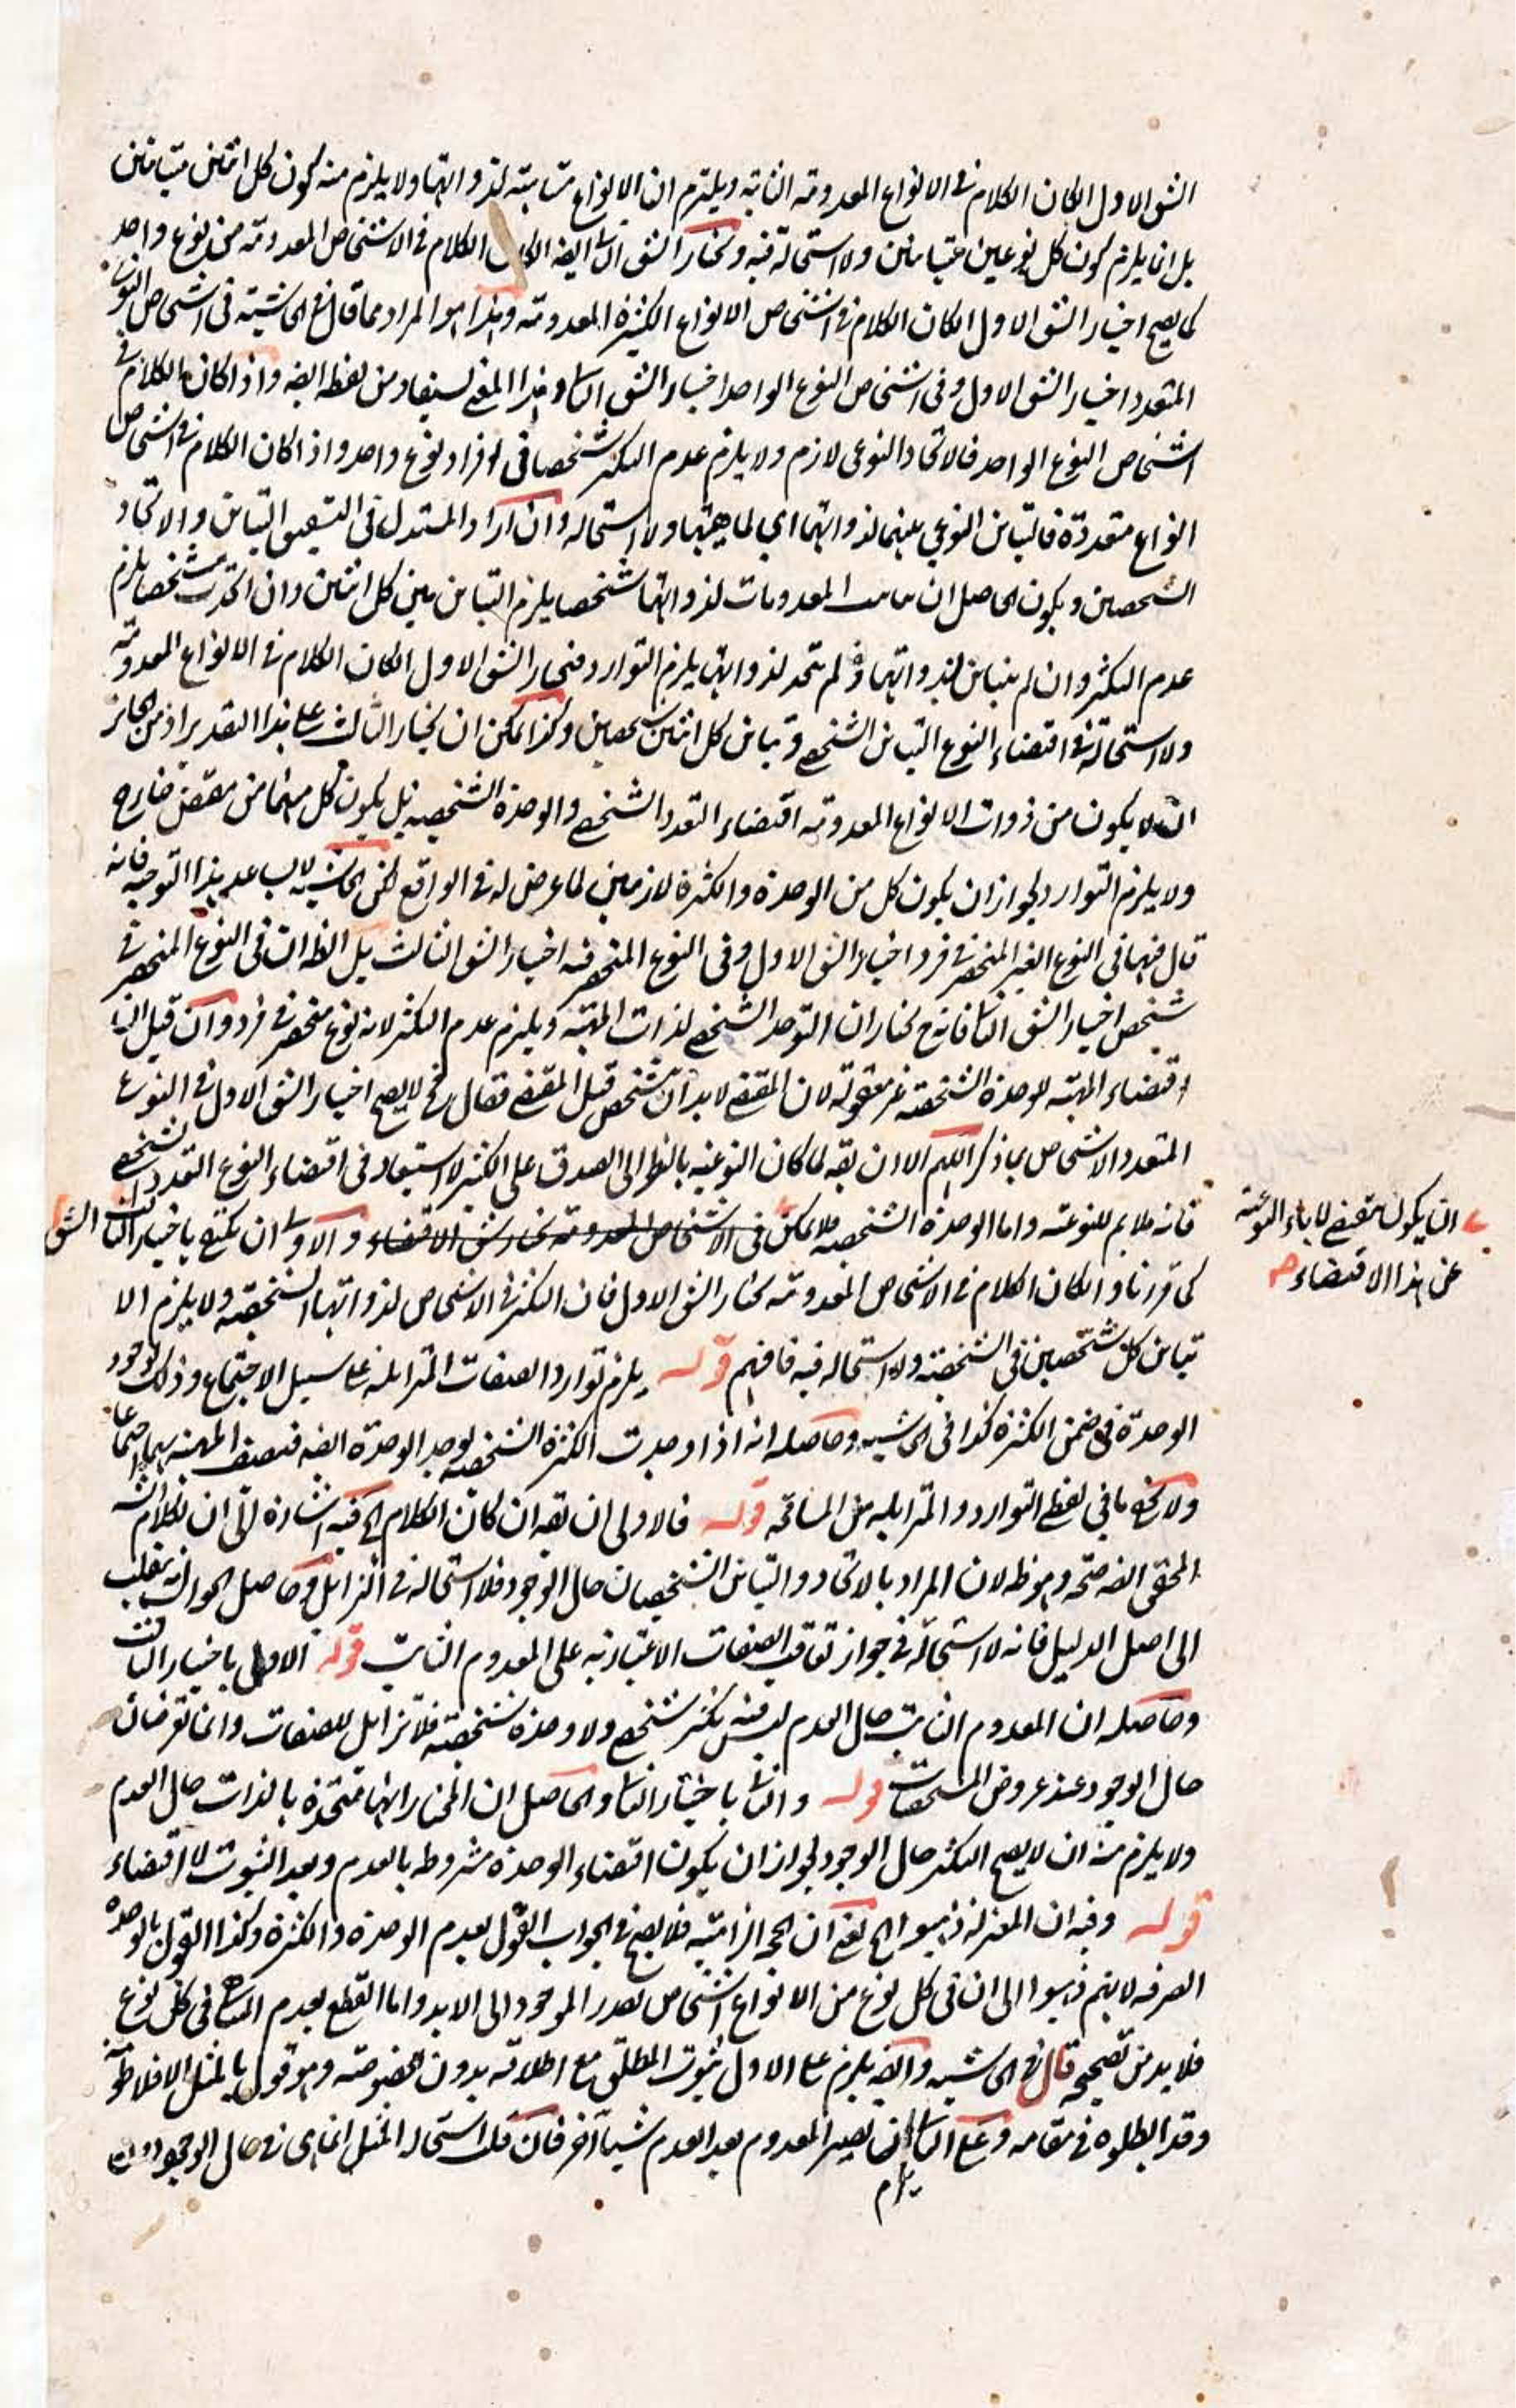 الشق الاول ان كان الكلام فى الانواع المعدومة الثابتة ويلتزم ان الانواع متباينة لذواتها ولا يلزم منه كون كل اثنين متباينين
بل انما يلزم كون كل نوعين متباينين ولا استحالة فيه ونختار الشق الثا ايضه ان كان الكلام فى الاشخاص المعدومة من نوع واحد
كما يصح اختيار الشق الاول ان كان الكلام فى اشخاص الانواع الكثيرة المعدومة وهذا هو المراد مما قال فى الحاشية فى اشخاص النوع
المتعدد اختيار الشق الاول وفى اشخاص النوع الواحد اختيار الشق الثا وهذا المعنى يستفاد من لفظ ايضه واذا كان الكلام فى
اشخاص النوع الواحد فالاتحاد النوعى لازم ولا يلزم عدم التكثر شخصا فى افراد نوع واحد واذا كان الكلام فى اشخاص
انواع متعددة فالتباين النوعي بينهما لذواتهما اي لماهيتها ولا استحالة وان اراد المستدل فى التشقيق التباين والاتحاد
الشخصين ويكون الحاصل ان المعدومات لذواتها شخصا يلزم التباين بين كل اثنين وان اتحدت شخصا يلزم
عدم التكثر وان لم يتباين لذواتهما ولم تتحد لذواتها يلزم التوارد فنختار الشق الاول ان كان الكلام فى الانواع المعدومة
ولا استحالة فى اقتضاء النوع التباين الشخصي وتباين كل اثنين شخصين وكذا يمكن ان نختار الثالث على هذا التقدير اذ من الجائز
ان لا يكون من ذوات الانواع المعدومة اقتضاء التعدد الشخصي والوحدة الشخصيه بل يكون كل منهما من مقتض خارج
ولا يلزم التوارد لجواز ان يكون كل من الوحدة والكثرة لازمين لما عرض له فى الواقع لكن الحاشيه لا يساعد هذا التوجيه فانه
قال فيها فى النوع الغير المنحصر فى فرد اختيار الشق الاول وفى النوع المنحصر فيه اختيار الشق الثالث بل الظه ان فى النوع المنحصر فى
شخص اختيار الشق الثا فانه ح نختار ان التوحد الشخصي لذات المهية ويلزم عدم التكثر لانه نوع منحصر فى فرد وان قيل ان
اقتضاء المهية للوحدة الشخصية غير معقولة لان المقتضى لابد ان يتشخص قبل المقتضى فقال فح لا يصح اختيار الشق الاول فى النوع
المتعدد الاشخاص بما ذكر اللهم الا ان يقه لما كان النوعية بالنظر الى الصدق على الكثير لا استبعاد فى اقتضاء النوع التعدد الشخصي
فانه ملايم للنوعية واما الوحدة الشخصيه فلا يمكن فى الاشخاص المعدومة نختار شق الاقتضاء والاولى ان نكتفي باختيار الثالث الشق
ان يكون مقتضى لاباء النوعية
عن هذا الاقتضاء صح
كما قررنا وان كان الكلام فى الاشخاص المعدومة نختار الشق الاول فان التكثر فى الاشخاص لذواتها الشخصية ولا يلزم الا
تباين كل شخصين فى الشخصية ولا استحالة فيه فافهم قوله يلزم توارد الصفات المتزايلة على سبيل الاجتماع وذلك لوجود
الوحدة فى ضمن الكثرة كذا فى الحاشيه وحاصله انه اذا وجدت الكثرة الشخصية يوجد الوحدة ايضه فيتصف المهية بهما اجتماعا
ولا يخفى ما فى لفظ التوارد والمتزايله من المسامحه قوله فالاولى ان يقه ان كان الكلام الخ فيه اشارة الى ان لكلام الشه
المحقق ايضه صحة وهو ظه لان المراد بالاتحاد والتباين الشخصيان حال الوجود فلا استحالة فى التزايل وحاصل الجواب انه ينقلب
الى اصل الدليل فانه لا استحالة فى جواز تعاقب الصفات الاعتبارية على المعدوم الثابت قوله الاولى باختيار الثالث
وحاصله ان المعدوم الثابت حال العدم ليس فيه تكثر شخصي ولا وحدة شخصية فلا تزايل للصفات وانما تعرضان
حال الوجود عند عروض المشخصات قوله والثا باختيار الثا والحاصل ان المختار انها متحدة بالذات حال العدم
ولا يلزم منه ان لا يصح التكثر حال الوجود لجواز ان يكون اقتضاء الوحدة مشروطه بالعدم وبعد الثبوت لا اقتضاء
قوله وفيه ان المعتزلة ذهبوا الخ يعنى ان الحجة الزامية فلا يصح فى الجواب القول بعدم الوحدة والكثرة وكذا القول بالوحدة
الصرفه لانهم ذهبوا الى ان فى كل نوع من الانواع اشخاص بعدد الموجود الى الابد واما القطع بعدم التناهى فى كل نوع
فلا بد من تصحيحه قال فى الحاشيه وايضه يلزم على الاول ثبوت المطلق مع اطلاقه بدون خصوصية وهو قول بالمثل الافلاطونية
وقد ابطلوه فى مقامه وعلى الثا ان يصير المعدوم بعد العدم شيأ آخر فان قلت استحالة المثل انما هى فى حال الوجود دون
يلزم